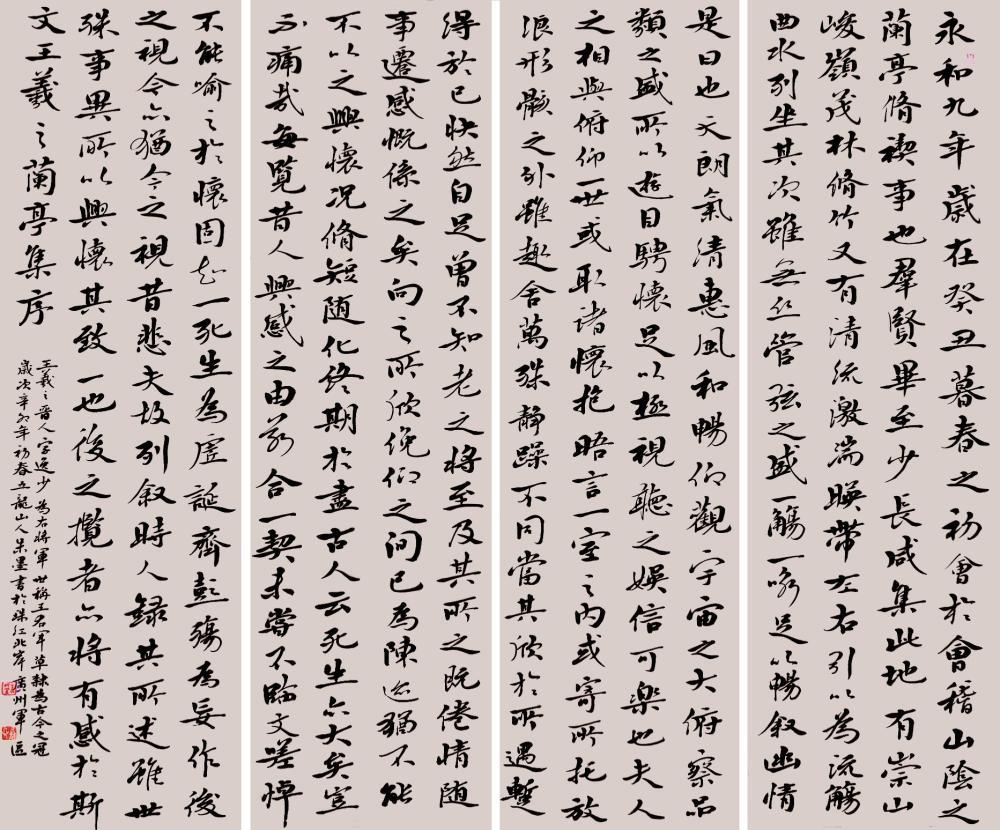 永和九年歲在癸丑暮春之初會於會稽山陰之
蘭亭脩禊事也羣賢畢至少長咸集此地有崇山
峻嶺茂林脩竹又有清流激湍暎帶左右引以為流觴
曲水列坐其次雖無丝管弦之盛一觴一咏足以暢叙幽情
是日也天朗氣清惠風和暢仰觀宇宙之大俯察品
類之盛所以遊目騁懷足以極視聽之娛信可樂也夫人
之相與俯仰一世或取諸懷抱晤言一室之內或寄所托放
浪形骸之外雖趣舍萬殊静躁不同當其欣於所遇蹔
得於己快然自足曾不知老之將至及其所之既倦情随
事遷感慨係之矣向之所欣俛仰之间已為陳迹猶不能
不以之興懷况脩短随化終期於盡古人云死生亦大矣豈
不痛哉每覽昔人興感之由若合一契未嘗不臨文嗟悼
不能喻之於懷固知一死生為虛誕齊彭殤為妄作後
之視今亦猶今之視昔悲夫故列叙時人録其所述雖世
殊事異所以興懷其致一也後之攬者亦將有感於斯
文王羲之蘭亭集序
王羲之晉人字逸少為右將軍世稱王右軍草隸為古今之冠
歲次辛卯年初春五龍山人朱墨書於珠江北岸廣州軍區